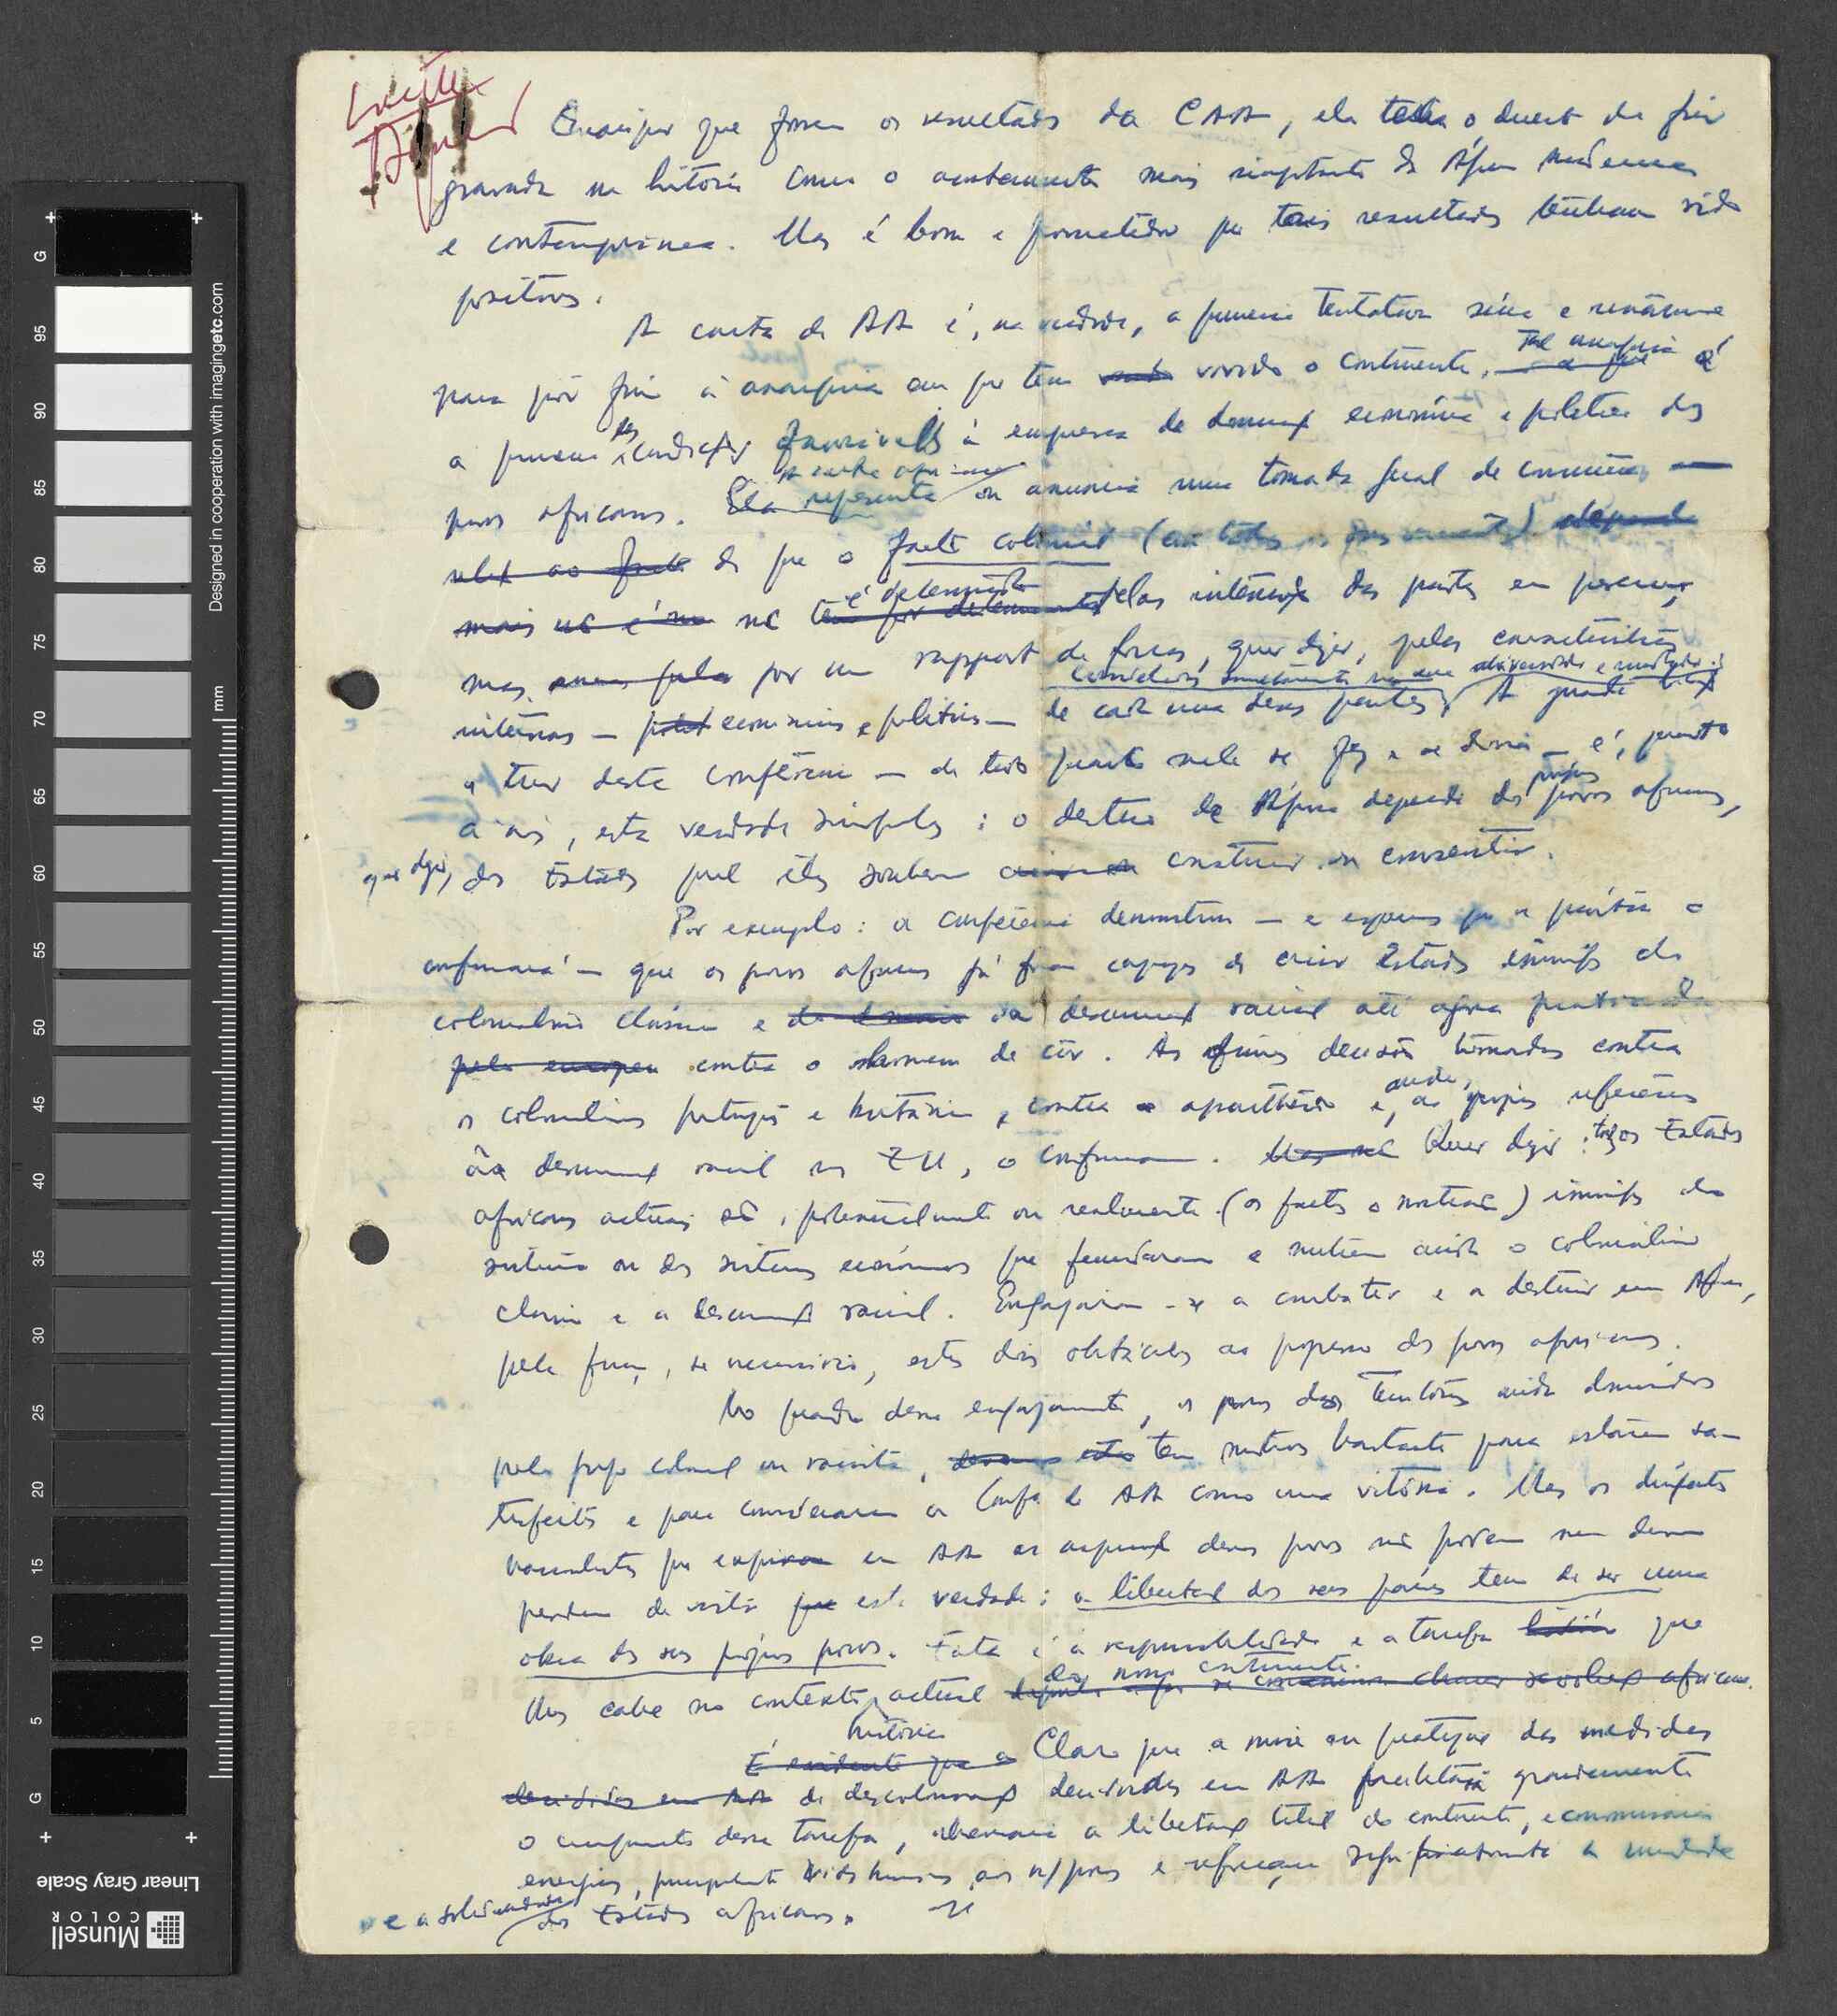 que fossem os resultados da CAA, ela o direito de
gravada na história como o acontecimento mais importante da África moderna
e contemporânea. Mas é bom e prometedor que tais resultados tenham sido
positivos.
A carta de AA é, na verdade, a primeira tentativa séria e unânime
para pôr fim à anarquia em que tem vivido o continente. Tal anarquia é
a primeira das condições favoráveis à empresa de dominação económica e política dos
povos africanos. A carta africana representa ou anuncia uma tomada geral de consciência
de que o facto colonial (em todos os
é determinado pelas intenções das partes em presença,
mas por um rapport de forças, quer dizer, pelas características
internas — económicas e políticas — de cada uma dessas partes, A grande lição
a tirar desta conferência — de tudo quanto nela se fez e se disse — é, quanto
a nós, esta verdade simples: o destino de África depende dos próprios povos africanos,
quer dizer, dos Estados que eles souberem construir ou consentir.
Por exemplo: a conferência demonstrou — e espero que a prática o
confirmará — que os povos africanos já foram capazes de criar Estados inimigos do
colonialismo clássico e da descriminação racial até agora praticada
contra o homem de côr. As firmes decisões tomadas contra
o colonialismo português e britânico, contra o apartheid e, ainda, as próprias referências
à descriminação racial nos EU, o confirmam. Quer dizer: todos os Estados
africanos actuais são, potencialmente ou realmente (os factos o mostrarão) inimigos do
sistema ou dos sistemas económicos que fecundaram e nutrem ainda o colonialismo
clássico e a descriminação racial. Engajaram-se a combater e a destruir em África,
pela força, se necessário, estes dois obstáculos ao progresso dos povos africanos.
No quadro desse engajamento, os povos dos territórios ainda dominados
pelo jugo colonial ou racista, tem motivos bastante para estarem sa-
tisfeitos e para considerarem a Confa de AA como uma vitória. Mas os dirigentes
nacionalistas que em AA as aspirações desses povos não podem nem devem
perder de vista esta verdade: a libertação dos seus países tem de ser uma
obra dos seus próprios povos. Esta é a responsabilidade e a tarefa que
lhes cabe no contexto histórico actual do nosso continente.
Claro que a prática das medidas
de descolonização decididas em AA facilitará grandemente
o cumprimento dessa tarefa, a libertação total do continente, economizará
energias, principalmente vidas humanas, aos n/povos e reforçará significativamente a unidade
e a solidariedade dos Estados africanos.
Designed in cooperation with imagingetc.com
mm
G
95
90
85
80
75
70
65
60
55
50
45
40
35
30
25
20
15
10
5
G
Linear Gray Scale
Munsell
COLOR